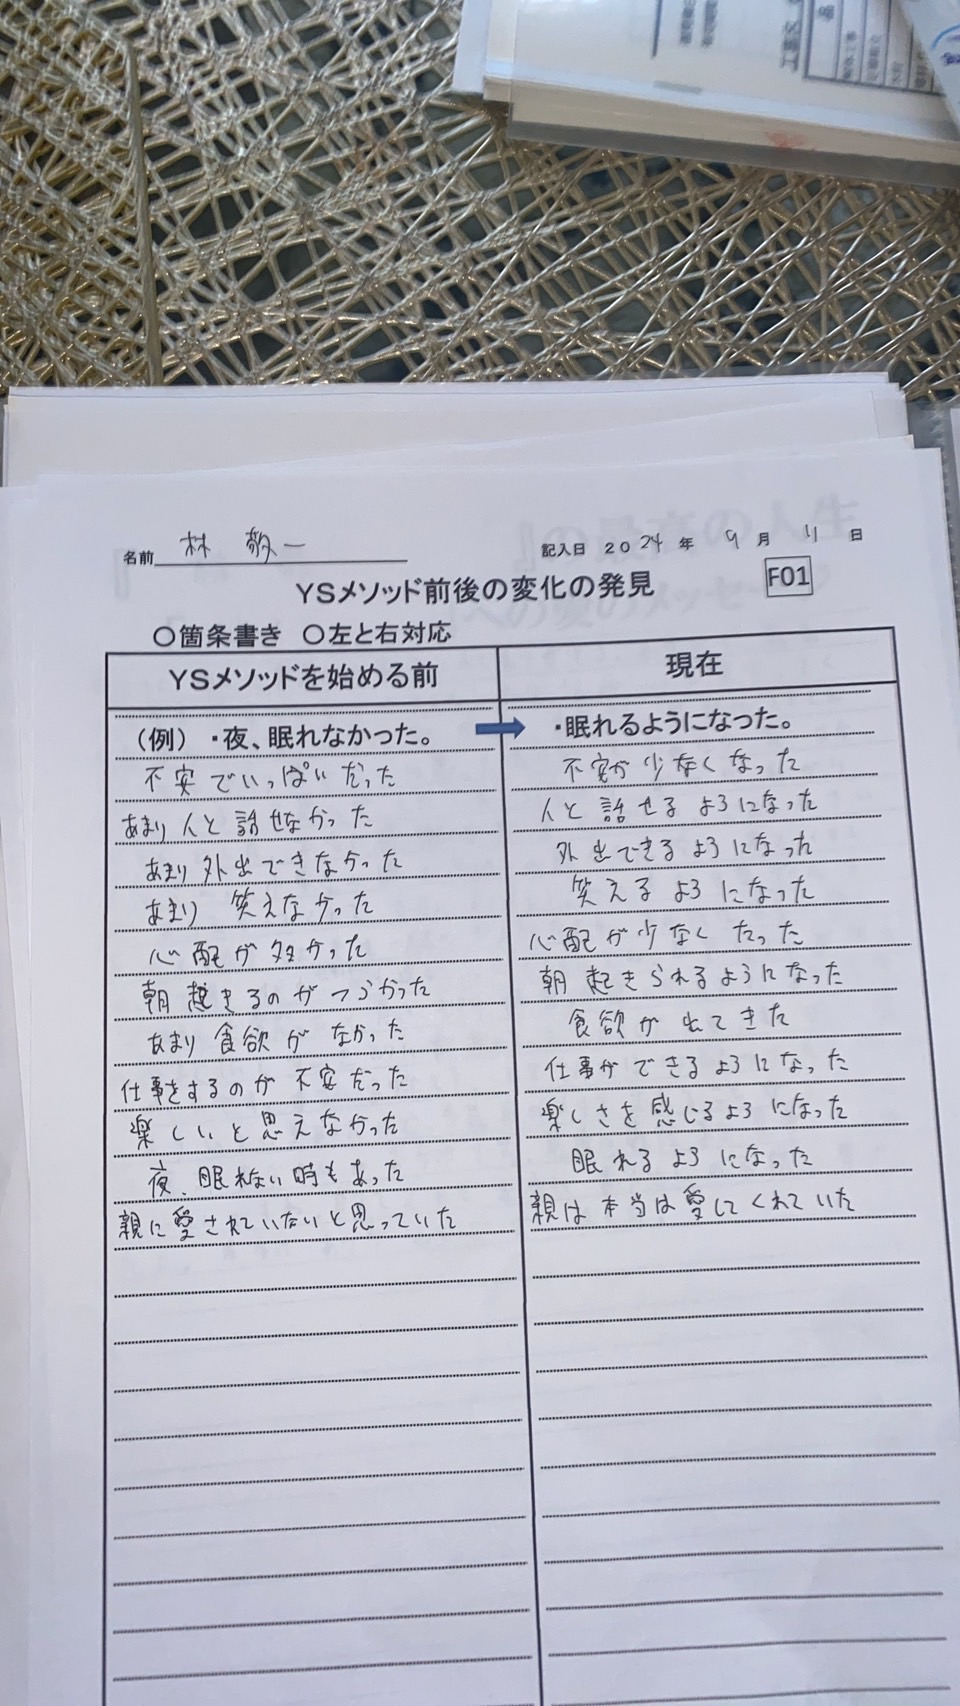 名前 林 敬一
記入日 2024 年 9 月 11 日
YSメソッド前後の変化の発見
F01
○箇条書き ○左と右対応
YSメソッドを始める前 現在
(例) ・夜、眠れなかった。 ・眠れるようになった。
不安でいっぱいだった 不安が少なくなった
あまり人と話せなかった 人と話せるようになった
あまり外出できなかった 外出できるようになった
あまり笑えなかった 笑えるようになった
心配が多かった 心配が少なくなった
朝起きるのがつらかった 朝起きられるようになった
あまり食欲がなかった 食欲が出てきた
仕事をするのが不安だった 仕事ができるようになった
楽しいと思えなかった 楽しさを感じるようになった
夜、眠れない時もあった 眠れるようになった
親に愛されていないと思っていた 親は本当は愛してくれていた